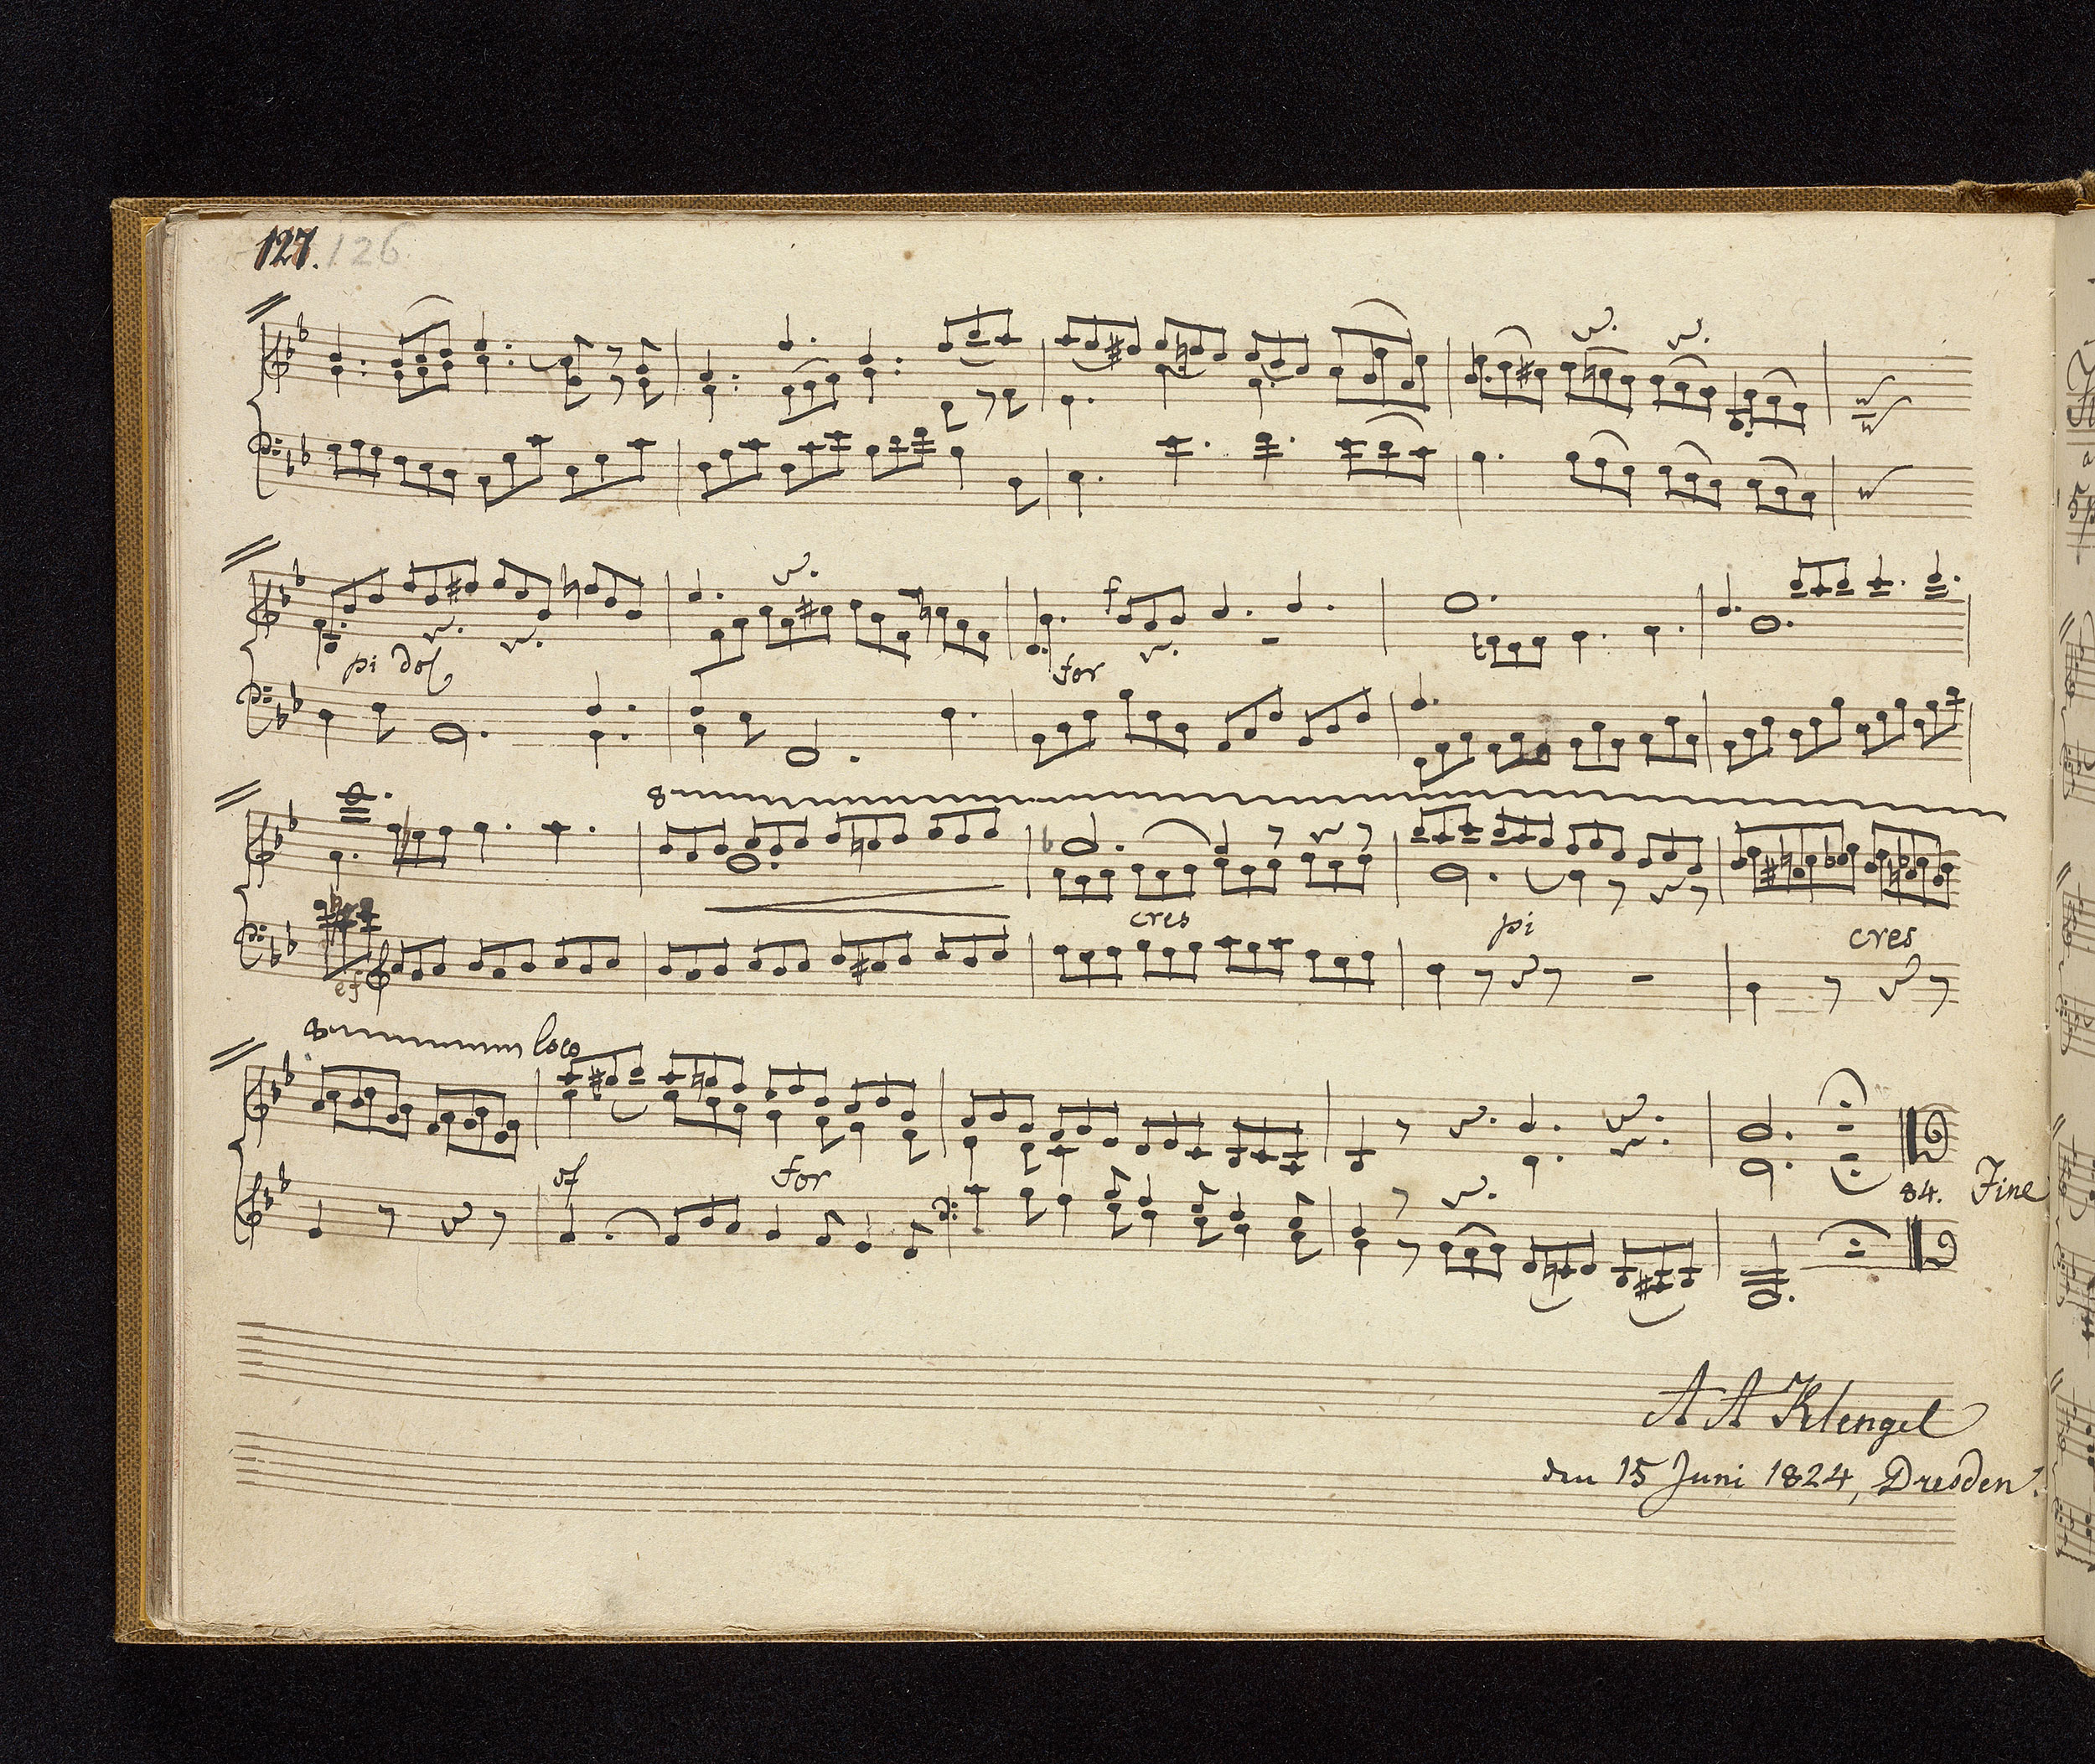 127. 126
pi dol
f
for
8
ef
cres
pi
cres
8 loco
sf
for
84. Fine
A A Klengel
den 15 Juni 1824, Dresden.